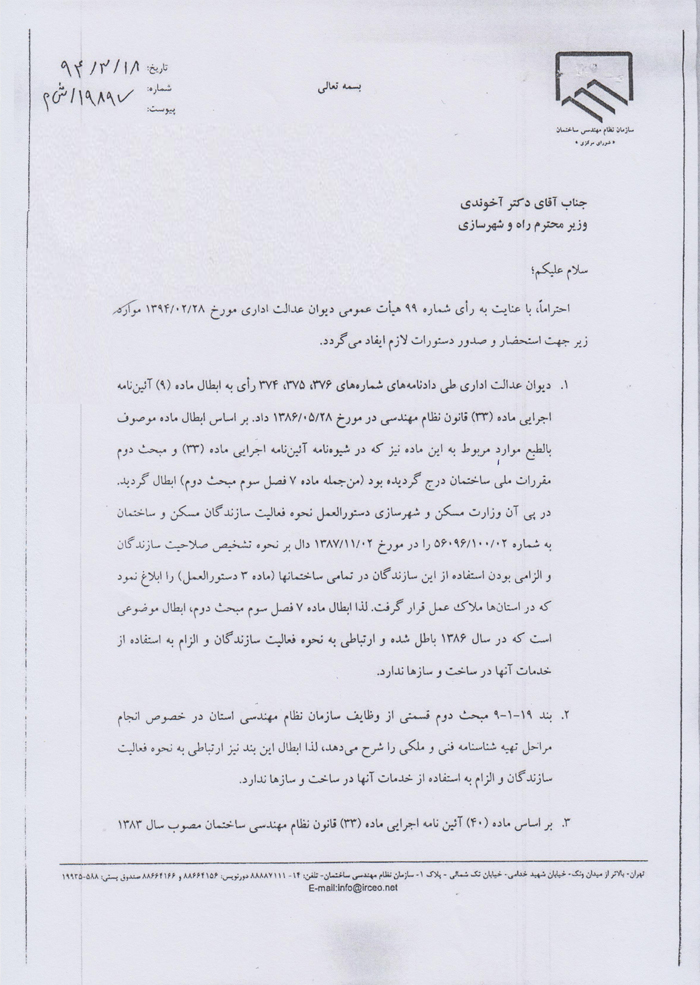 بسمه تعالی
تاریخ: ۹۴/۳/۱۸
شماره: ۱۹۸۹۷/ش م
پیوست:
سازمان نظام مهندسی ساختمان
« شورای مرکزی »
جناب آقای دکتر آخوندی
وزیر محترم راه و شهرسازی
سلام علیکم؛
احتراماً، با عنایت به رأی شماره ۹۹ هیأت عمومی دیوان عدالت اداری مورخ ۱۳۹۴/۰۲/۲۸ موارد
زیر جهت استحضار و صدور دستورات لازم ایفاد می‌گردد.
۱. دیوان عدالت اداری طی دادنامه‌های شماره‌های ۳۷۶، ۳۷۵، ۳۷۴ رأی به ابطال ماده (۹) آئین‌نامه
اجرایی ماده (۳۳) قانون نظام مهندسی در مورخ ۱۳۸۶/۰۵/۲۸ داد. بر اساس ابطال ماده موصوف
بالطبع موارد مربوط به این ماده نیز که در شیوه‌نامه آئین‌نامه اجرایی ماده (۳۳) و مبحث دوم
مقررات ملی ساختمان درج گردیده بود (من‌جمله ماده ۷ فصل سوم مبحث دوم) ابطال گردید.
در پی آن وزارت مسکن و شهرسازی دستورالعمل نحوه فعالیت سازندگان مسکن و ساختمان
به شماره ۵۶۰۹۶/۱۰۰/۰۲ را در مورخ ۱۳۸۷/۱۱/۰۲ دال بر نحوه تشخیص صلاحیت سازندگان
و الزامی بودن استفاده از این سازندگان در تمامی ساختمانها (ماده ۳ دستورالعمل) را ابلاغ نمود
که در استان‌ها ملاک عمل قرار گرفت. لذا ابطال ماده ۷ فصل سوم مبحث دوم، ابطال موضوعی
است که در سال ۱۳۸۶ باطل شده و ارتباطی به نحوه فعالیت سازندگان و الزام به استفاده از
خدمات آنها در ساخت و سازها ندارد.
۲. بند ۱۹-۱-۹ مبحث دوم قسمتی از وظایف سازمان نظام مهندسی استان در خصوص انجام
مراحل تهیه شناسنامه فنی و ملکی را شرح می‌دهد، لذا ابطال این بند نیز ارتباطی به نحوه فعالیت
سازندگان و الزام به استفاده از خدمات آنها در ساخت و سازها ندارد.
۳. بر اساس ماده (۴۰) آئین نامه اجرایی ماده (۳۳) قانون نظام مهندسی ساختمان مصوب سال ۱۳۸۳
تهران- بالاتر از میدان ونک- خیابان شهید خدامی- خیابان تک شمالی - پلاک ۱- سازمان نظام مهندسی ساختمان- تلفن: ۱۴- ۸۸۸۸۷۱۱۱ دورنویس: ۸۸۶۶۴۱۵۶ و ۸۸۶۶۴۱۶۶ صندوق پستی: ۵۸۸-۱۹۹۲۵
E-mail:Info@irceo.net